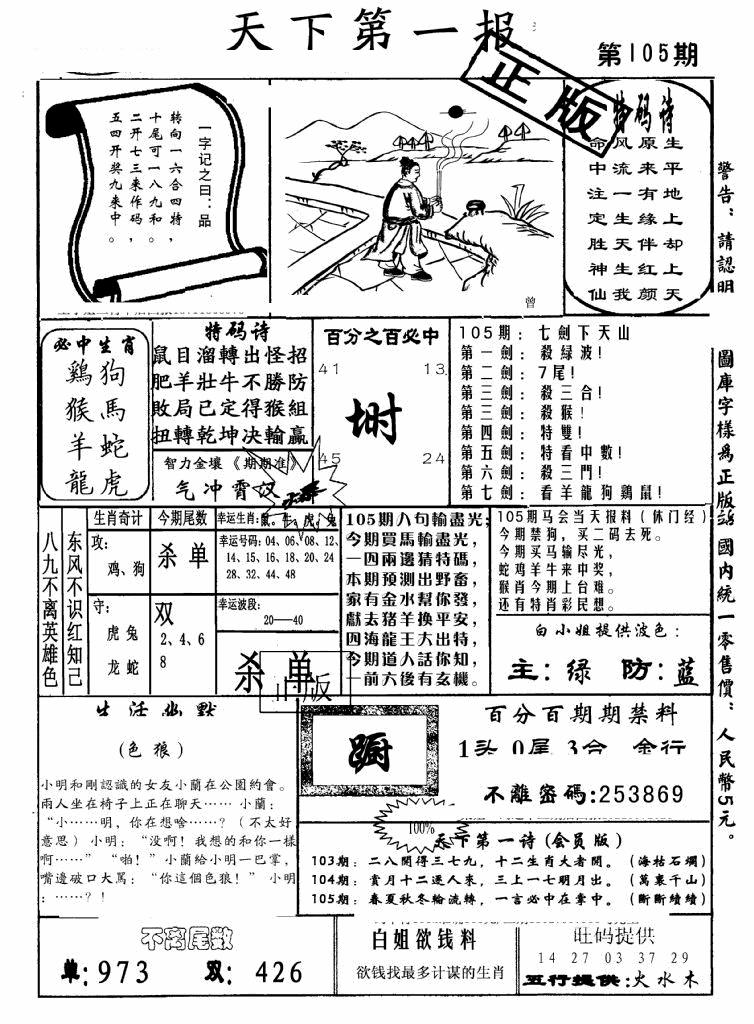 天下第一报
第105期
正版
一字记之曰：品
转向一六合四特，
十尾可一八九和。
二开七三来作码，
五四开奖九来中。
曾
特码诗
生平地上却上天
原来有缘伴红颜
风流一生天生我
命中注定胜神仙
警告：請認明
圖庫字樣為正版
國内統一零售價：人民幣5元。
必中生肖
鷄狗
猴馬
羊蛇
龍虎
特码诗
鼠目溜轉出怪招
肥羊壯牛不勝防
敗局已定得猴組
扭轉乾坤决輸赢
智力金壤《期期准》
气冲霄汉
百分之百必中
41 13
45 24
105期：七劍下天山
第一劍：殺緑波！
第二劍：7尾！
第三劍：殺三合！
第三劍：殺猴！
第四劍：特雙！
第五劍：特看中數！
第六劍：殺三門！
第七劍：看羊龍狗鷄鼠！
东风不识红知己
八九不离英雄色
生肖奇计
攻：
鸡、狗
守：
虎兔
龙蛇
今期尾数
杀单
双
2、4、6
8
幸运生肖：
鼠。牛。虎。兔
幸运号码：04、06、08、12、
14、15、16、18、20、24
28、32、44、48
幸运波段：
20—40
杀单
正版
105期八句輸盡光；
今期買馬輸盡光，
一四兩邊猜特碼，
本期預測出野畜，
家有金水幫你發，
獻去猪羊换平安，
四海龍王大出特，
今期道人話你知，
一前六後有玄機。
105期马会当天报料（休门经）
今期禁狗，买二码去死。
今期买马输尽光，
蛇鸡羊牛来中奖，
猴肖今期上台难。
还有特肖彩民想。
白小姐提供波色：
主：绿 防：蓝
生活幽默
（色狼）
小明和剛認識的女友小蘭在公園約會。
兩人坐在椅子上正在聊天……小蘭：
“小……明，你在想啥……？（不太好
意思）小明：“没啊！我想的和你一樣
啊……” “啪！”小蘭給小明一巴掌，
嘴邊破口大罵：“你這個色狼！” 小明
：……？！
百分百期期禁料
1头 0尾 3合 金行
不離密碼：253869
100%
天下第一诗（会员版）
103期：二八開得三七九，十二生肖大者開。（海枯石爛）
104期：賞月十二逐人來，三上一七明月出。（萬裏千山）
105期：春夏秋冬輪流轉，一言必中在掌中。（斷斷續續）
不离尾数
单：973 双：426
白姐欲钱料
欲钱找最多计谋的生肖
旺码提供
14 27 03 37 29
五行提供：火水木